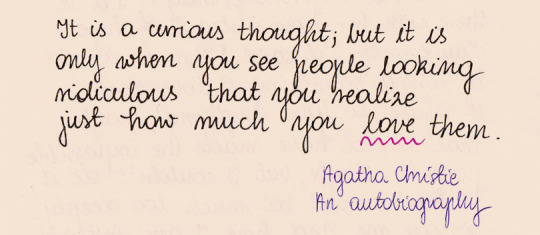 It is a curious thought; but it is
only when you see people looking
ridiculous that you realize
just how much you love them.
Agatha Christie
An autobiography